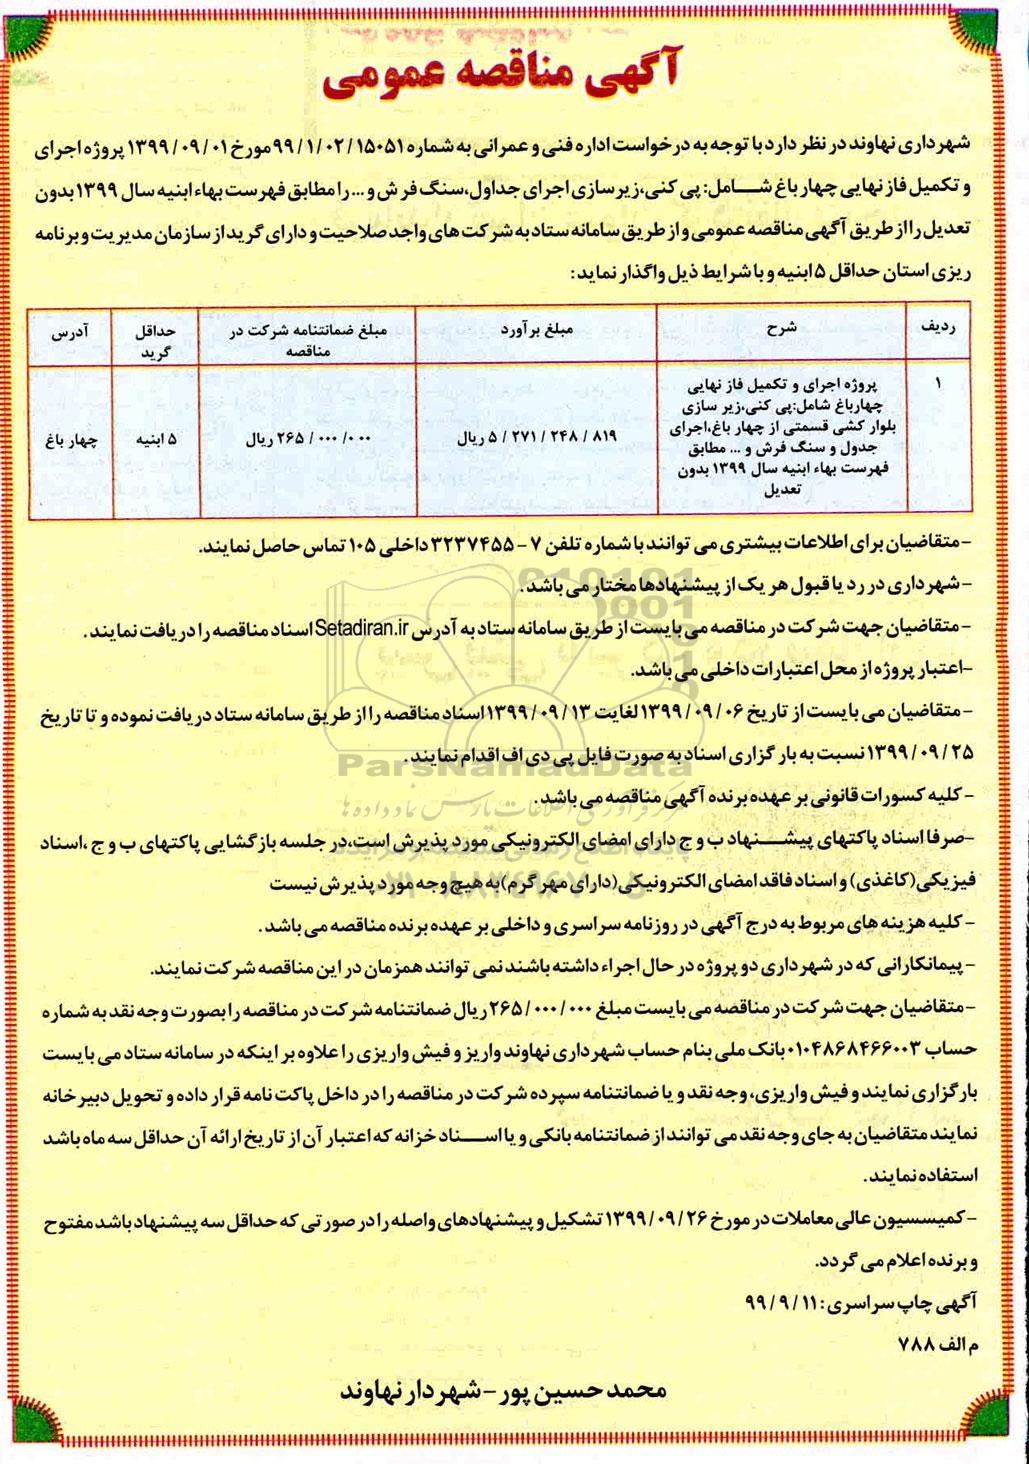 آگهی مناقصه عمومی
شهرداری نهاوند در نظر دارد با توجه به درخواست اداره فنی و عمرانی به شماره ۹۹/۱/۰۲/۱۵۰۵۱ مورخ ۱۳۹۹/۰۹/۰۱ پروژه اجرای
و تکمیل فاز نهایی چهار باغ شامل: پی کنی،زیر سازی اجرای جداول،سنگ فرش و ... را مطابق فهرست بهاء ابنیه سال ۱۳۹۹ بدون
تعدیل را از طریق آگهی مناقصه عمومی و از طریق سامانه ستاد به شرکت های واجد صلاحیت و دارای گرید از سازمان مدیریت و برنامه
ریزی استان حداقل ۵ ابنیه و با شرایط ذیل واگذار نماید:
ردیف شرح مبلغ برآورد مبلغ ضمانتنامه شرکت در حداقل آدرس
مناقصه گرید
۱ پروژه اجرای و تکمیل فاز نهایی
چهارباغ شامل:پی کنی،زیر سازی
بلوار کشی قسمتی از چهار باغ،اجرای
جدول و سنگ فرش و ... مطابق
فهرست بهاء ابنیه سال ۱۳۹۹ بدون
تعدیل
۵/۲۷۱/۲۴۸/۸۱۹ ریال ۲۶۵/۰۰۰/۰۰۰ ریال ۵ ابنیه چهار باغ
-متقاضیان برای اطلاعات بیشتری می توانند با شماره تلفن ۷-۳۲۳۷۴۵۵ داخلی ۱۰۵ تماس حاصل نمایند.
-شهرداری در رد یا قبول هر یک از پیشنهادها مختار می باشد.
-متقاضیان جهت شرکت در مناقصه می بایست از طریق سامانه ستاد به آدرس Setadiran.ir اسناد مناقصه را دریافت نمایند.
-اعتبار پروژه از محل اعتبارات داخلی می باشد.
-متقاضیان می بایست از تاریخ ۱۳۹۹/۰۹/۰۶ لغایت ۱۳۹۹/۰۹/۱۳ اسناد مناقصه را از طریق سامانه ستاد دریافت نموده و تا تاریخ
۱۳۹۹/۰۹/۲۵ نسبت به بارگزاری اسناد به صورت فایل پی دی اف اقدام نمایند.
ParsNamadData
-کلیه کسورات قانونی بر عهده برنده آگهی مناقصه می باشد.
-صرفا اسناد پاکتهای پیشنهاد ب و ج دارای امضای الکترونیکی مورد پذیرش است،در جلسه بازگشایی پاکتهای ب و ج ،اسناد
فیزیکی(کاغذی) و اسناد فاقد امضای الکترونیکی(دارای مهر گرم)به هیچ وجه مورد پذیرش نیست
-کلیه هزینه های مربوط به درج آگهی در روزنامه سراسری و داخلی بر عهده برنده مناقصه می باشد.
-پیمانکارانی که در شهرداری دو پروژه در حال اجراء داشته باشند نمی توانند همزمان در این مناقصه شرکت نمایند.
-متقاضیان جهت شرکت در مناقصه می بایست مبلغ ۲۶۵/۰۰۰/۰۰۰ ریال ضمانتنامه شرکت در مناقصه را بصورت وجه نقد به شماره
حساب ۰۱۰۴۸۶۸۴۶۶۰۰۳ بانک ملی بنام حساب شهرداری نهاوند واریز و فیش واریزی را علاوه بر اینکه در سامانه ستاد می بایست
بارگزاری نمایند و فیش واریزی، وجه نقد و یا ضمانتنامه سپرده شرکت در مناقصه را در داخل پاکت نامه قرار داده و تحویل دبیرخانه
نمایند متقاضیان به جای وجه نقد می توانند از ضمانتنامه بانکی و یا اسناد خزانه که اعتبار آن از تاریخ ارائه آن حداقل سه ماه باشد
استفاده نمایند.
-کمیسسیون عالی معاملات در مورخ ۱۳۹۹/۰۹/۲۶ تشکیل و پیشنهادهای واصله را در صورتی که حداقل سه پیشنهاد باشد مفتوح
و برنده اعلام می گردد.
آگهی چاپ سراسری: ۹۹/۹/۱۱
م الف ۷۸۸
محمد حسین پور-شهردار نهاوند